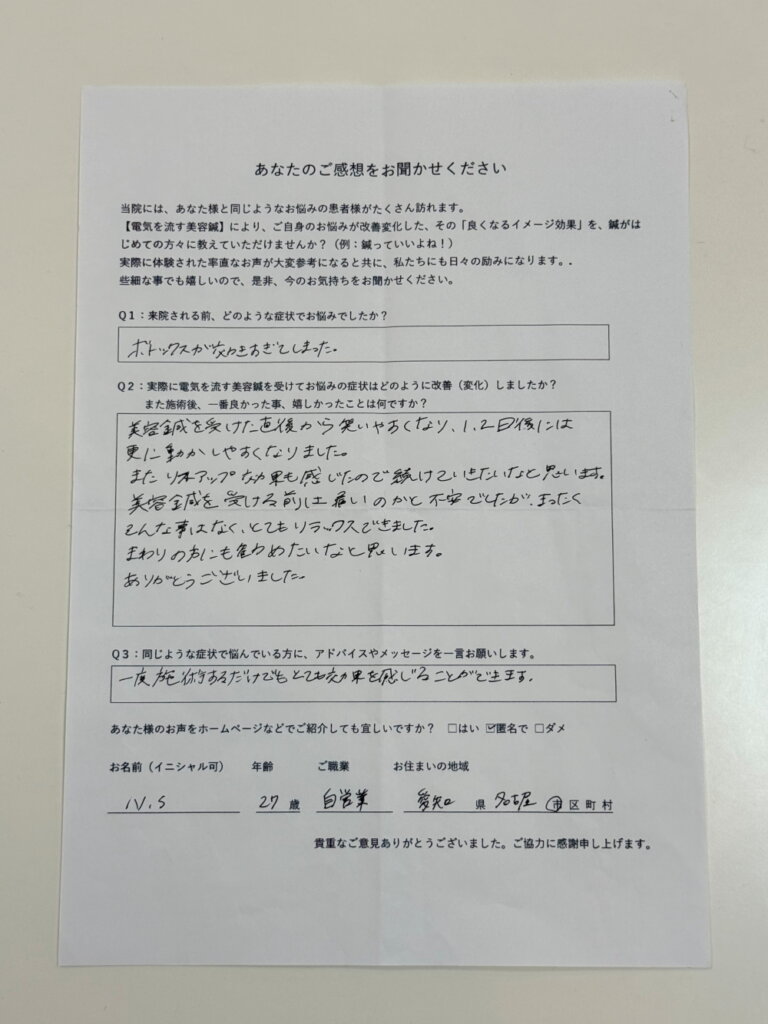 あなたのご感想をお聞かせください
当院には、あなた様と同じようなお悩みの患者様がたくさん訪れます。
【電気を流す美容鍼】により、ご自身のお悩みが改善変化した、その「良くなるイメージ効果」を、鍼がは
じめての方々に教えていただけませんか？（例：鍼っていいよね！）
実際に体験された率直なお声が大変参考になると共に、私たちにも日々の励みになります。.
些細な事でも嬉しいので、是非、今のお気持ちをお聞かせください。
Q1：来院される前、どのような症状でお悩みでしたか？
ボトックスが効きすぎてしまった。
Q2：実際に電気を流す美容鍼を受けてお悩みの症状はどのように改善（変化）しましたか？
また施術後、一番良かった事、嬉しかったことは何ですか？
美容鍼を受けた直後から笑いやすくなり、1、2日後には
更に動かしやすくなりました。
また リフトアップ効果も感じたので続けていきたいなと思います。
美容鍼を受ける前は痛いのかと不安でしたが、まったく
そんな事はなく、とてもリラックスできました。
まわりの方にも勧めたいなと思います。
ありがとうございました。
Q3：同じような症状で悩んでいる方に、アドバイスやメッセージを一言お願いします。
一度施術するだけでもとても効果を感じることができます。
あなた様のお声をホームページなどでご紹介しても宜しいですか？ □はい ☑匿名で □ダメ
お名前（イニシャル可） 年齢 ご職業 お住まいの地域
N.S 27 歳 自営業 愛知 県 名古屋 市 区 町 村
貴重なご意見ありがとうございました。ご協力に感謝申し上げます。